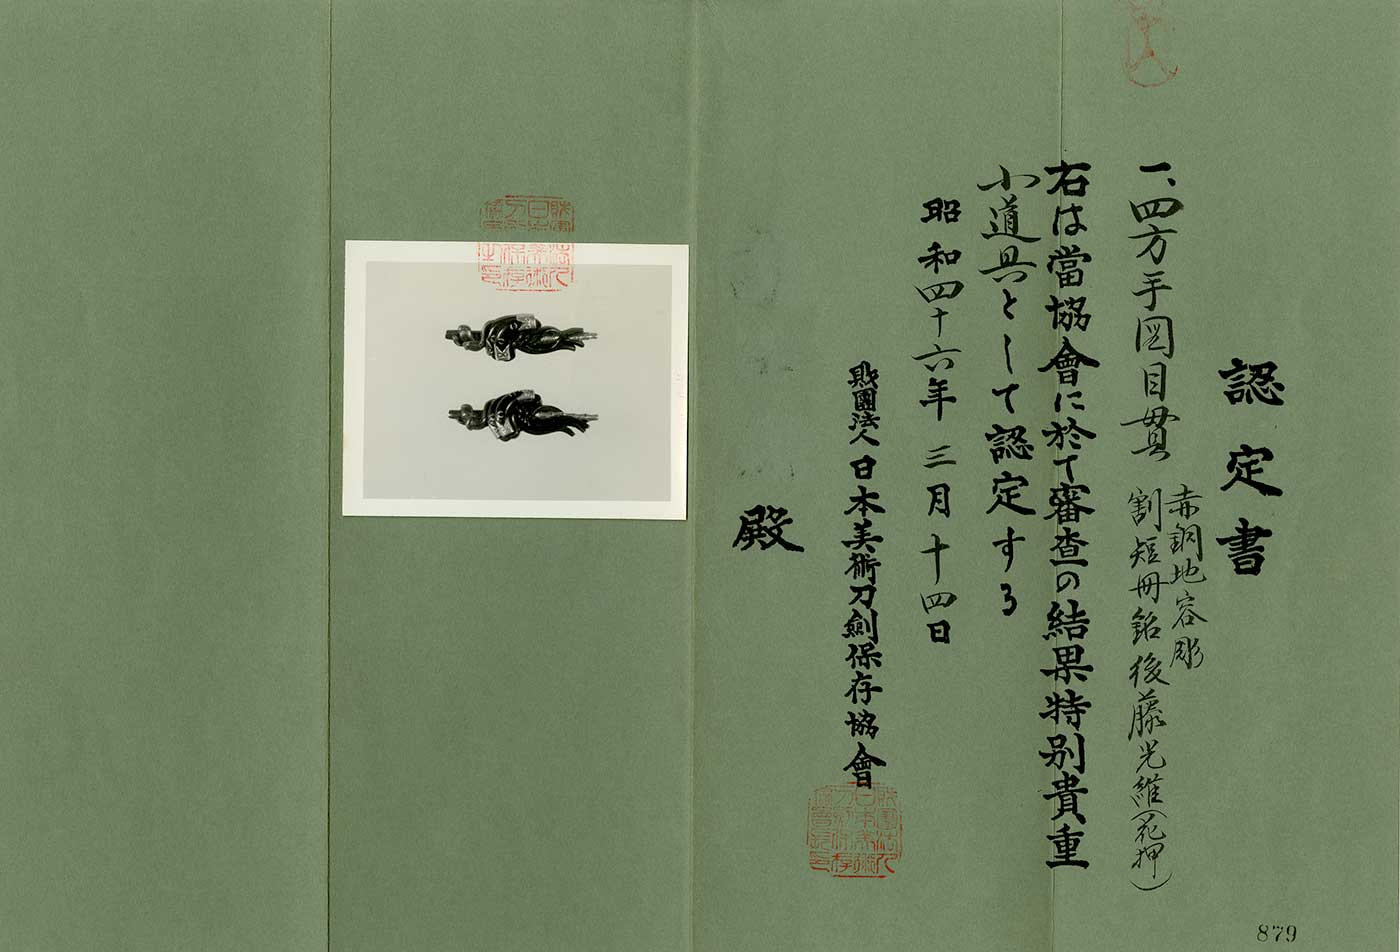 認定書
一、四方手図目貫
赤銅地容彫
割短冊銘後藤光維(花押)
右は當協會に於て審査の結果特別貴重
小道具として認定する
昭和四十六年三月十四日
財團法人日本美術刀劍保存協會
殿
879